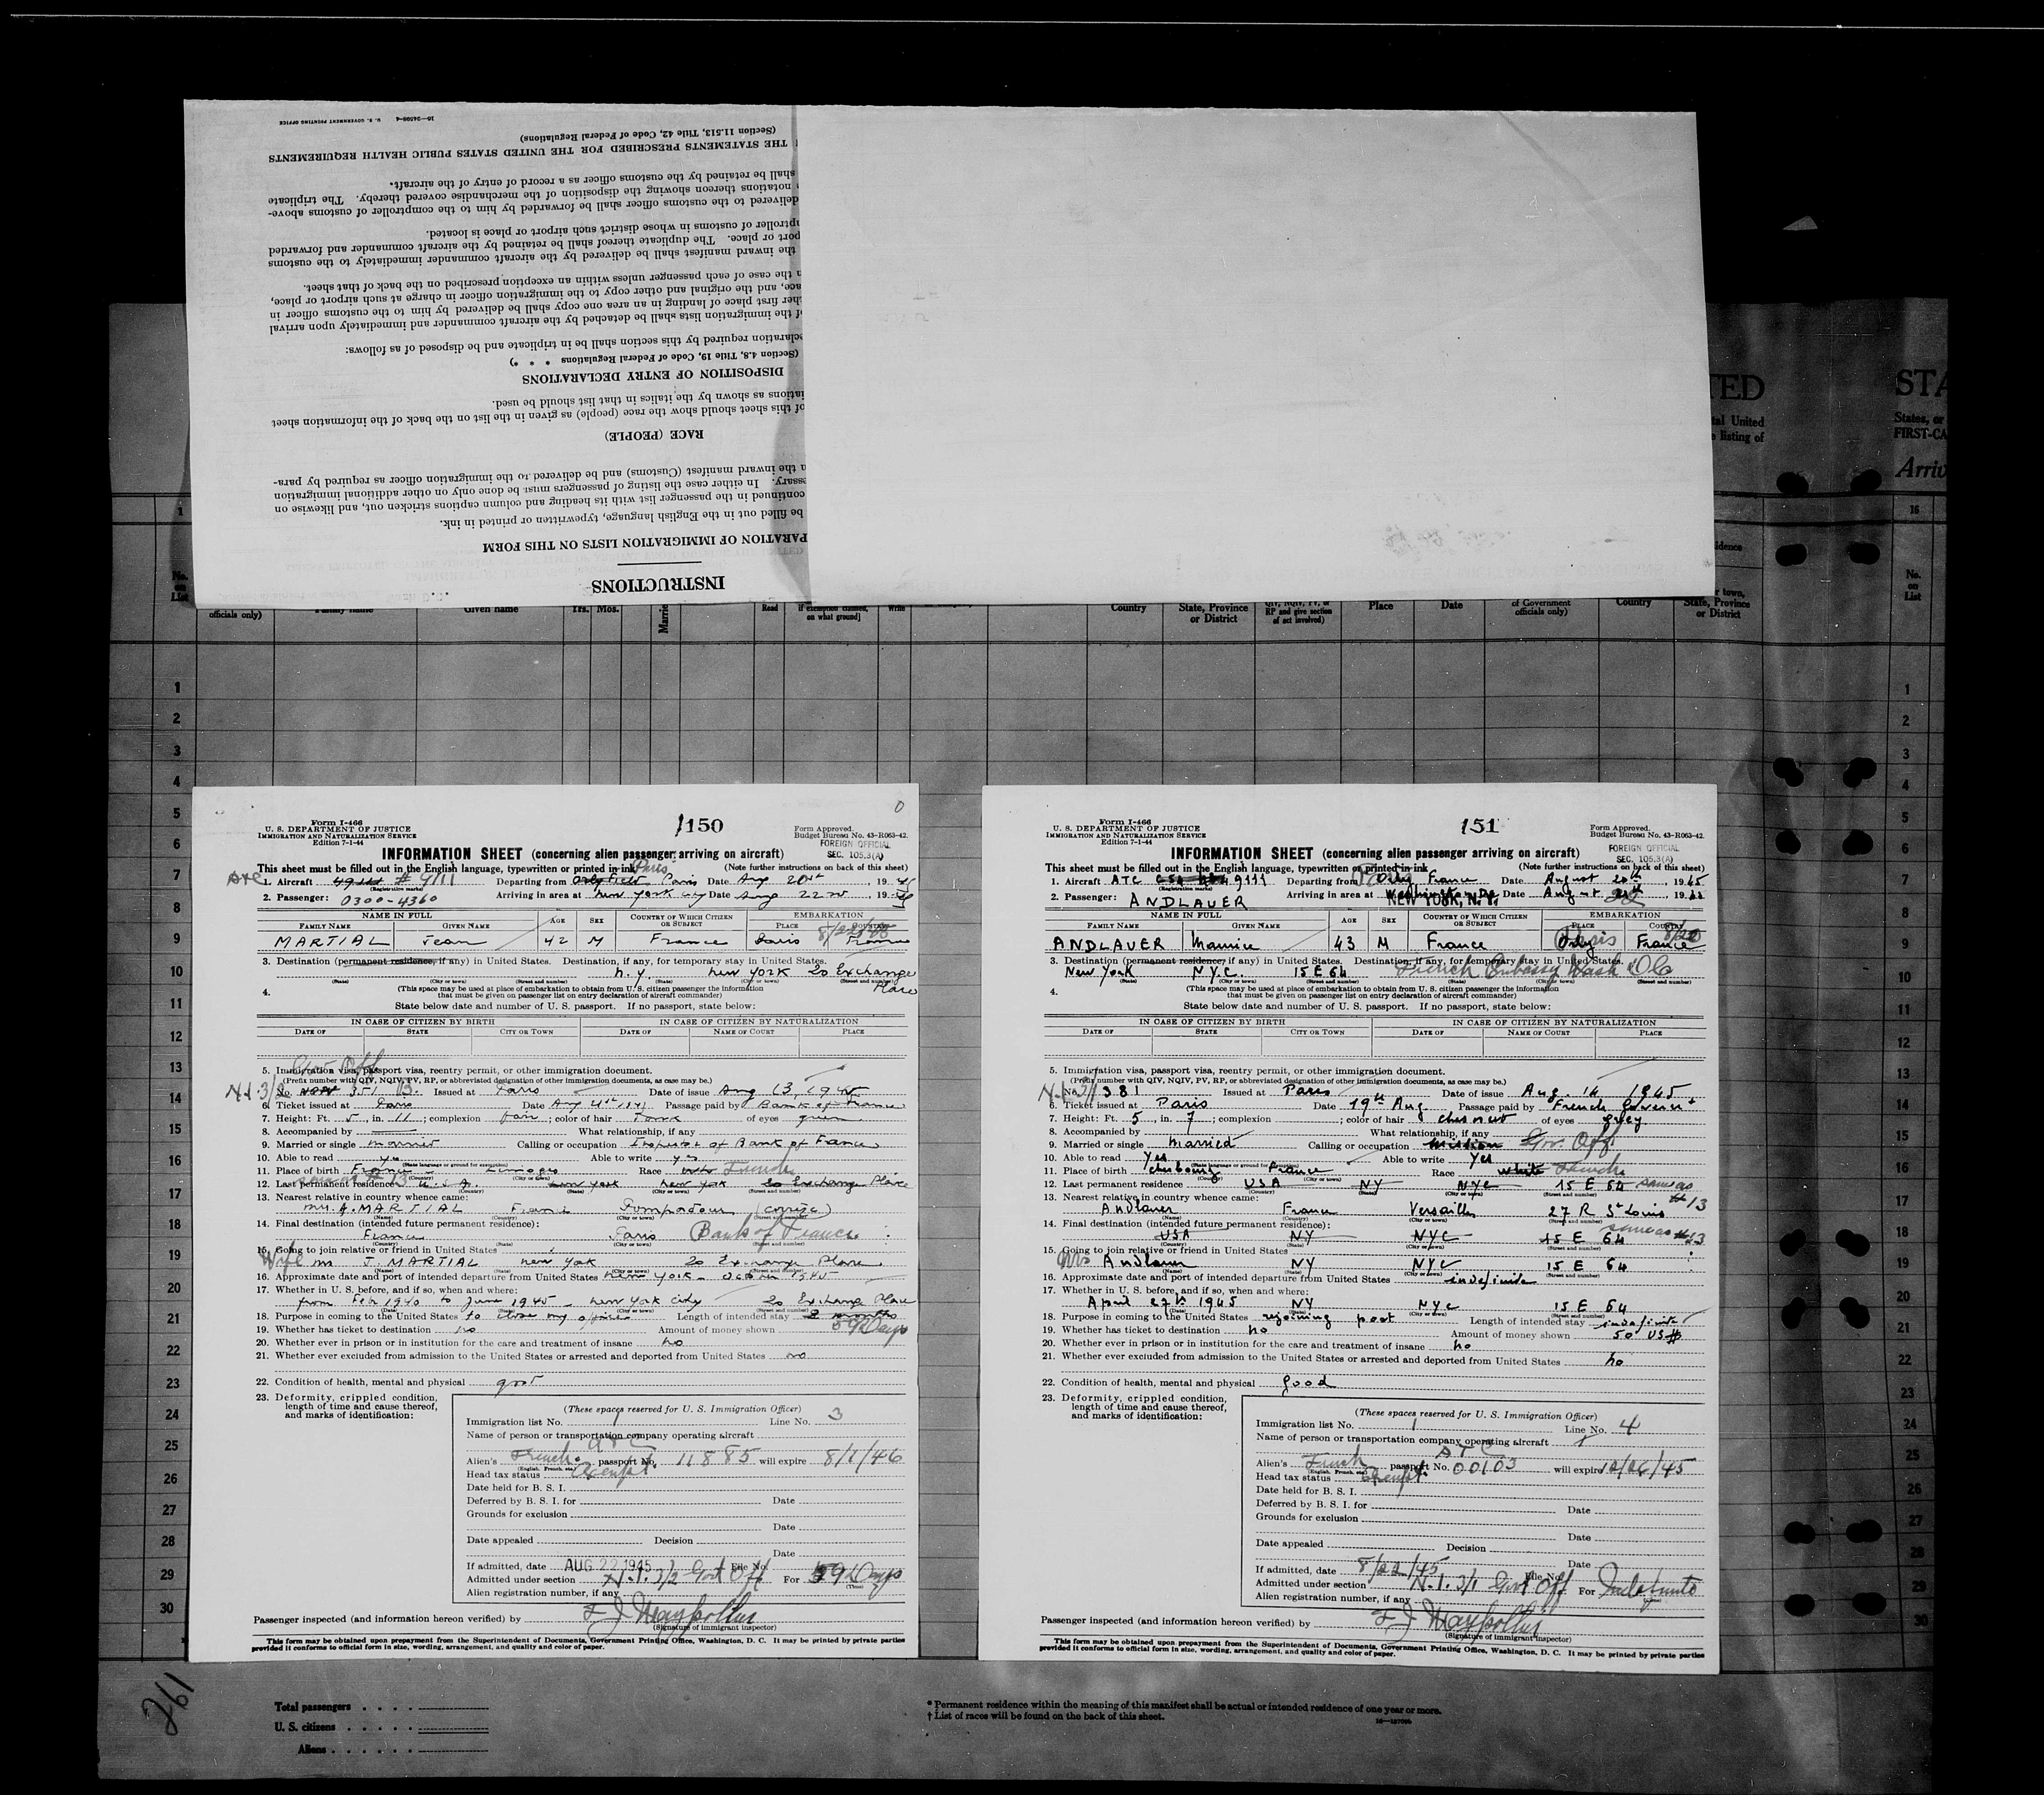 16—24598-4 U. S. GOVERNMENT PRINTING OFFICE
(Section 11.513, Title 42, Code of Federal Regulations)
THE STATEMENTS PRESCRIBED FOR THE UNITED STATES PUBLIC HEALTH REQUIREMENTS
shall be retained by the customs officer as a record of entry of the aircraft.
notations thereon showing the disposition of the merchandise covered thereby. The triplicate
delivered to the customs officer shall be forwarded by him to the comptroller of customs above-
ptroller of customs in whose district such airport or place is located.
port or place. The duplicate thereof shall be retained by the aircraft commander and forwarded
the inward manifest shall be delivered by the aircraft commander immediately to the customs
n the case of each passenger unless within an exception prescribed on the back of that sheet.
ace, and the original and other copy to the immigration officer in charge at such airport or place,
her first place of landing in an area one copy shall be delivered by him to the customs officer in
of the immigration lists shall be detached by the aircraft commander and immediately upon arrival
eclaration required by this section shall be in triplicate and be disposed of as follows:
(Section 4.8, Title 19, Code of Federal Regulations * * *)
DISPOSITION OF ENTRY DECLARATIONS
iations as shown by the italics in that list should be used.
of this sheet should show the race (people) as given in the list on the back of the information sheet
RACE (PEOPLE)
n the inward manifest (Customs) and be delivered to the immigration officer as required by para-
essary. In either case the listing of passengers must be done only on other additional immigration
continued in the passenger list with its heading and column captions stricken out, and likewise on
be filled out in the English language, typewritten or printed in ink.
PARATION OF IMMIGRATION LISTS ON THIS FORM
INSTRUCTIONS
TED STA
tal United States, or
listing of FIRST-CA
Arriv
1 16
No. on List
officials only) Family name Given name Yrs. Mos. Read if exemption claimed, on what ground] Write Country State, Province or District QIV, NQIV, PV, or RP and give section of act involved) Place Date of Government officials only) Country State, Province or District
No. on List
1
2
3
4
5
6
7
8
9
10
11
12
13
14
15
16
17
18
19
20
21
22
23
24
25
26
27
28
29
30
Form I-466
U. S. DEPARTMENT OF JUSTICE
IMMIGRATION AND NATURALIZATION SERVICE
Edition 7-1-44
150
Form Approved.
Budget Bureau No. 43-R063-42.
FOREIGN OFFICIAL
SEC. 105.3(A)
INFORMATION SHEET (concerning alien passenger arriving on aircraft)
This sheet must be filled out in the English language, typewritten or printed in ink. (Note further instructions on back of this sheet)
1. Aircraft # 9111 Departing from Paris Date Aug 20st, 1945
(Registration marks)
2. Passenger: 0300-4360 Arriving in area at New York City Date Aug 22nd, 19
NAME IN FULL AGE SEX COUNTRY OF WHICH CITIZEN OR SUBJECT EMBARKATION
FAMILY NAME GIVEN NAME PLACE COUNTRY
MARTIAL Jean 42 M France Paris France
3. Destination (permanent residence, if any) in United States. Destination, if any, for temporary stay in United States.
N.Y. New York 20 Exchange Place
(State) (City or town) (Street and number) (State) (City or town) (Street and number)
4. (This space may be used at place of embarkation to obtain from U. S. citizen passenger the information
that must be given on passenger list on entry declaration of aircraft commander)
State below date and number of U. S. passport. If no passport, state below:
IN CASE OF CITIZEN BY BIRTH IN CASE OF CITIZEN BY NATURALIZATION
DATE OF STATE CITY OR TOWN DATE OF NAME OF COURT PLACE
5. Immigration visa, passport visa, reentry permit, or other immigration document.
(Prefix number with QIV, NQIV, PV, RP, or abbreviated designation of other immigration documents, as case may be.)
No. 351 Issued at Paris Date of issue Aug 13, 1945
6. Ticket issued at Paris Date Aug Passage paid by Bank of France
7. Height: Ft. 5, in. 11; complexion fair; color of hair of eyes green
8. Accompanied by What relationship, if any
9. Married or single married Calling or occupation Inspector of Bank of France
10. Able to read yes Able to write yes
(State language or ground for exemption)
11. Place of birth France Limoges Race French
(Country) (City or town)
12. Last permanent residence U.S.A. New York New York 20 Exchange Place
(Country) (State) (City or town) (Street and number)
13. Nearest relative in country whence came:
Mr. A. MARTIAL France Pompadour (Corrèze)
(Name) (Country) (City or town) (Street and number)
14. Final destination (intended future permanent residence):
France Paris Bank of France
(Country) (State) (City or town) (Street and number)
15. Going to join relative or friend in United States
Wife J. MARTIAL New York 20 Exchange Place
(Name) (State) (City or town) (Street and number)
16. Approximate date and port of intended departure from United States New York - October 1945
17. Whether in U. S. before, and if so, when and where:
from Feb 1940 to June 1945 - New York City 20 Exchange Place
(Date) (City or town) (Street and number)
18. Purpose in coming to the United States to close my office Length of intended stay 59 Days
19. Whether has ticket to destination no Amount of money shown
20. Whether ever in prison or in institution for the care and treatment of insane no
21. Whether ever excluded from admission to the United States or arrested and deported from United States no
22. Condition of health, mental and physical good
23. Deformity, crippled condition,
length of time and cause thereof,
and marks of identification:
(These spaces reserved for U. S. Immigration Officer)
Immigration list No. 1 Line No. 3
Name of person or transportation company operating aircraft ATC
Alien's French passport No. 11885 will expire 8/1/46
(English, French, etc.)
Head tax status Exempt
Date held for B. S. I.
Deferred by B. S. I. for Date
Grounds for exclusion
Date
Date appealed Decision
Date
If admitted, date AUG 22 1945 File No.
Admitted under section N.I. 3/2 Govt Off For 59 Days
(Time)
Alien registration number, if any
Passenger inspected (and information hereon verified) by
(Signature of immigrant inspector)
This form may be obtained upon prepayment from the Superintendent of Documents, Government Printing Office, Washington, D. C. It may be printed by private parties
provided it conforms to official form in size, wording, arrangement, and quality and color of paper.
Form I-466
U. S. DEPARTMENT OF JUSTICE
IMMIGRATION AND NATURALIZATION SERVICE
Edition 7-1-44
151
Form Approved.
Budget Bureau No. 43-R063-42.
FOREIGN OFFICIAL
SEC. 105.3(A)
INFORMATION SHEET (concerning alien passenger arriving on aircraft)
This sheet must be filled out in the English language, typewritten or printed in ink. (Note further instructions on back of this sheet)
1. Aircraft ATC 9111 Departing from Orly France Date August 20th, 1945
(Registration marks)
2. Passenger: ANDLAUER Arriving in area at NEW YORK, N.Y. Date August 22, 19
NAME IN FULL AGE SEX COUNTRY OF WHICH CITIZEN OR SUBJECT EMBARKATION
FAMILY NAME GIVEN NAME PLACE COUNTRY
ANDLAUER Maurice 43 M France Paris France
3. Destination (permanent residence, if any) in United States. Destination, if any, for temporary stay in United States.
New York N.Y.C. 15 E 64 French Embassy Wash DC
(State) (City or town) (Street and number) (State) (City or town) (Street and number)
4. (This space may be used at place of embarkation to obtain from U. S. citizen passenger the information
that must be given on passenger list on entry declaration of aircraft commander)
State below date and number of U. S. passport. If no passport, state below:
IN CASE OF CITIZEN BY BIRTH IN CASE OF CITIZEN BY NATURALIZATION
DATE OF STATE CITY OR TOWN DATE OF NAME OF COURT PLACE
5. Immigration visa, passport visa, reentry permit, or other immigration document.
(Prefix number with QIV, NQIV, PV, RP, or abbreviated designation of other immigration documents, as case may be.)
No. 381 Issued at Paris Date of issue Aug. 14 1945
6. Ticket issued at Paris Date 19th Aug. Passage paid by French Governt
7. Height: Ft. 5, in. 7; complexion ; color of hair chesnut of eyes grey
8. Accompanied by What relationship, if any
9. Married or single Married Calling or occupation Gov. Off.
10. Able to read Yes Able to write Yes
(State language or ground for exemption)
11. Place of birth Cherbourg France Race white French
(Country) (City or town)
12. Last permanent residence USA NY NYC 15 E 64 same as #13
(Country) (State) (City or town) (Street and number)
13. Nearest relative in country whence came:
Andlauer France Versailles 27 R St Louis
(Name) (Country) (City or town) (Street and number)
14. Final destination (intended future permanent residence):
USA NY NYC 15 E 64 same as #13
(Country) (State) (City or town) (Street and number)
15. Going to join relative or friend in United States
Mrs Andlauer NY NYC 15 E 64
(Name) (State) (City or town) (Street and number)
16. Approximate date and port of intended departure from United States indefinite
17. Whether in U. S. before, and if so, when and where:
April 27th 1945 NY NYC 15 E 64
(Date) (City or town) (Street and number)
18. Purpose in coming to the United States rejoining post Length of intended stay indefinite
19. Whether has ticket to destination no Amount of money shown 50 US$
20. Whether ever in prison or in institution for the care and treatment of insane no
21. Whether ever excluded from admission to the United States or arrested and deported from United States no
22. Condition of health, mental and physical good
23. Deformity, crippled condition,
length of time and cause thereof,
and marks of identification:
(These spaces reserved for U. S. Immigration Officer)
Immigration list No. 1 Line No. 4
Name of person or transportation company operating aircraft ATC
Alien's French passport No. 00103 will expire
(English, French, etc.)
Head tax status Exempt
Date held for B. S. I.
Deferred by B. S. I. for Date
Grounds for exclusion
Date
Date appealed Decision
Date
If admitted, date 8/22/45 File No.
Admitted under section N.I. 3/1 Govt Off For Indefinite
Alien registration number, if any
Passenger inspected (and information hereon verified) by
(Signature of immigrant inspector)
This form may be obtained upon prepayment from the Superintendent of Documents, Government Printing Office, Washington, D. C. It may be printed by private parties
provided it conforms to official form in size, wording, arrangement, and quality and color of paper.
261
Total passengers . . . .
U. S. citizens . . . . .
Aliens . . . . . .
* Permanent residence within the meaning of this manifest shall be actual or intended residence of one year or more.
† List of races will be found on the back of this sheet.